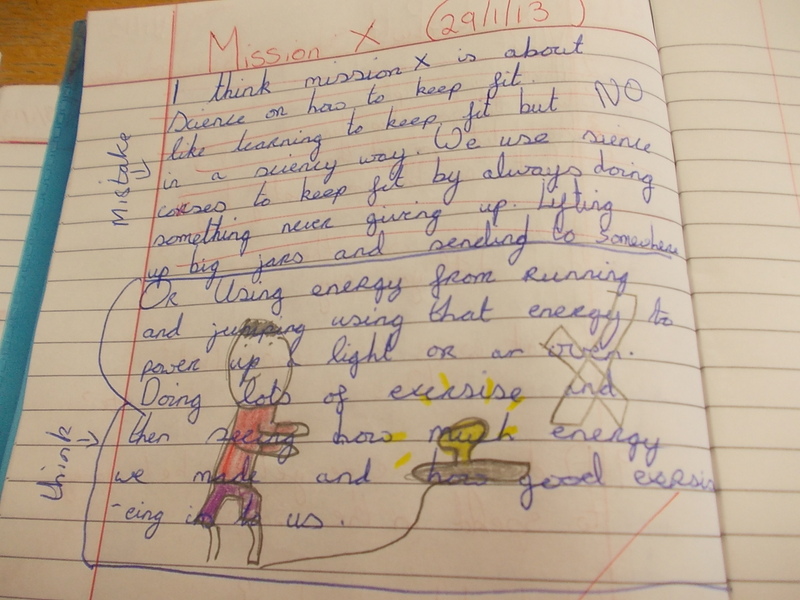 Mission X (29/1/13)
I think mission X is about
science on how to keep fit.
like learning to keep fit but NO
in a sciency way. We use sience
corses to keep fit by always doing
something never giving up. Lifting
up big jars and sending to somewhere
Mistake
Or Using energy from running
and jumping using that energy to
power up a light or an oven.
Doing lots of exersise and
then seeing how much energy
we made and how good exersis
-eing is to us.
think